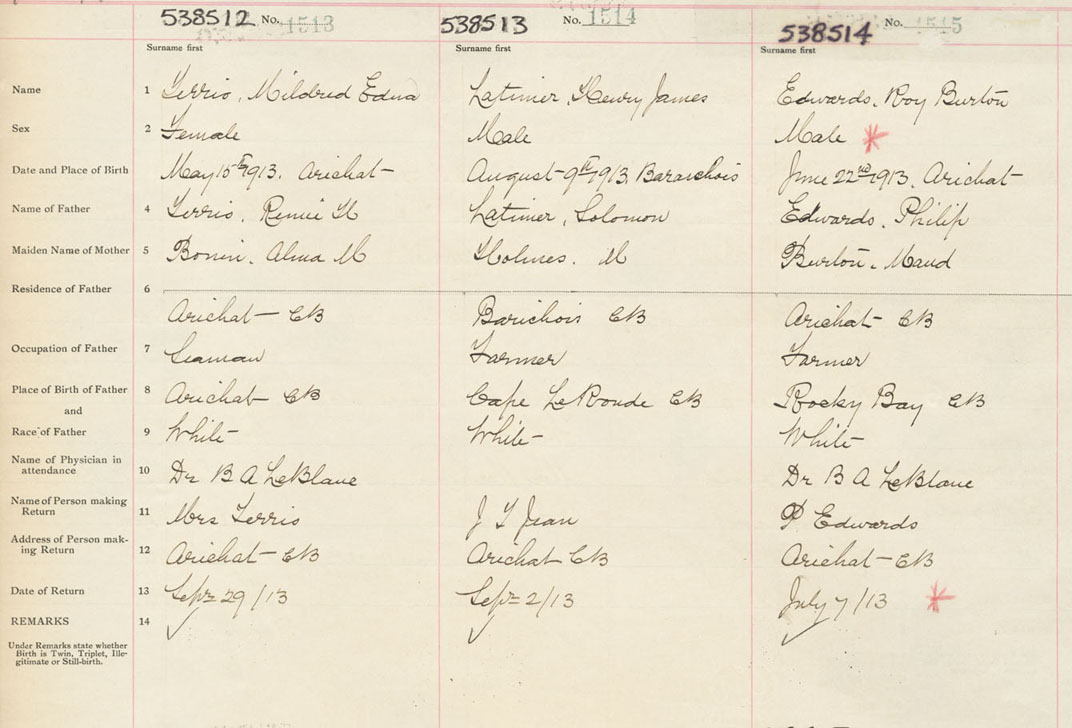 538512 No. 1513 538513 No. 1514 538514 No. 1515
Surname first Surname first Surname first
Name 1 Terrio, Mildred Edna Latimer, Henry James Edwards, Roy Burton
Sex 2 Female Male Male
Date and Place of Birth May 15th 1913, Arichat August 9th 1913, Baraichois June 22nd 1913, Arichat
Name of Father 4 Terrio, Latimer, Solomon Edwards, Philip
Maiden Name of Mother 5 Bonin, Alma M Holmes, M Burton, Maud
Residence of Father 6
Arichat CB Barichois CB Arichat CB
Occupation of Father 7 Seaman Farmer Farmer
Place of Birth of Father 8 Arichat CB Cape LeRonde CB Rocky Bay CB
and
Race of Father 9 White White White
Name of Physician in
attendance 10 Dr B A LeBlanc Dr B A LeBlanc
Name of Person making
Return 11 Mrs Terrio J Jean P Edwards
Address of Person mak-
ing Return 12 Arichat CB Arichat CB Arichat CB
Date of Return 13 Sept 29/13 Sept 2/13 July 7/13
REMARKS 14
Under Remarks state whether
Birth is Twin, Triplet, Ille-
gitimate or Still-birth.